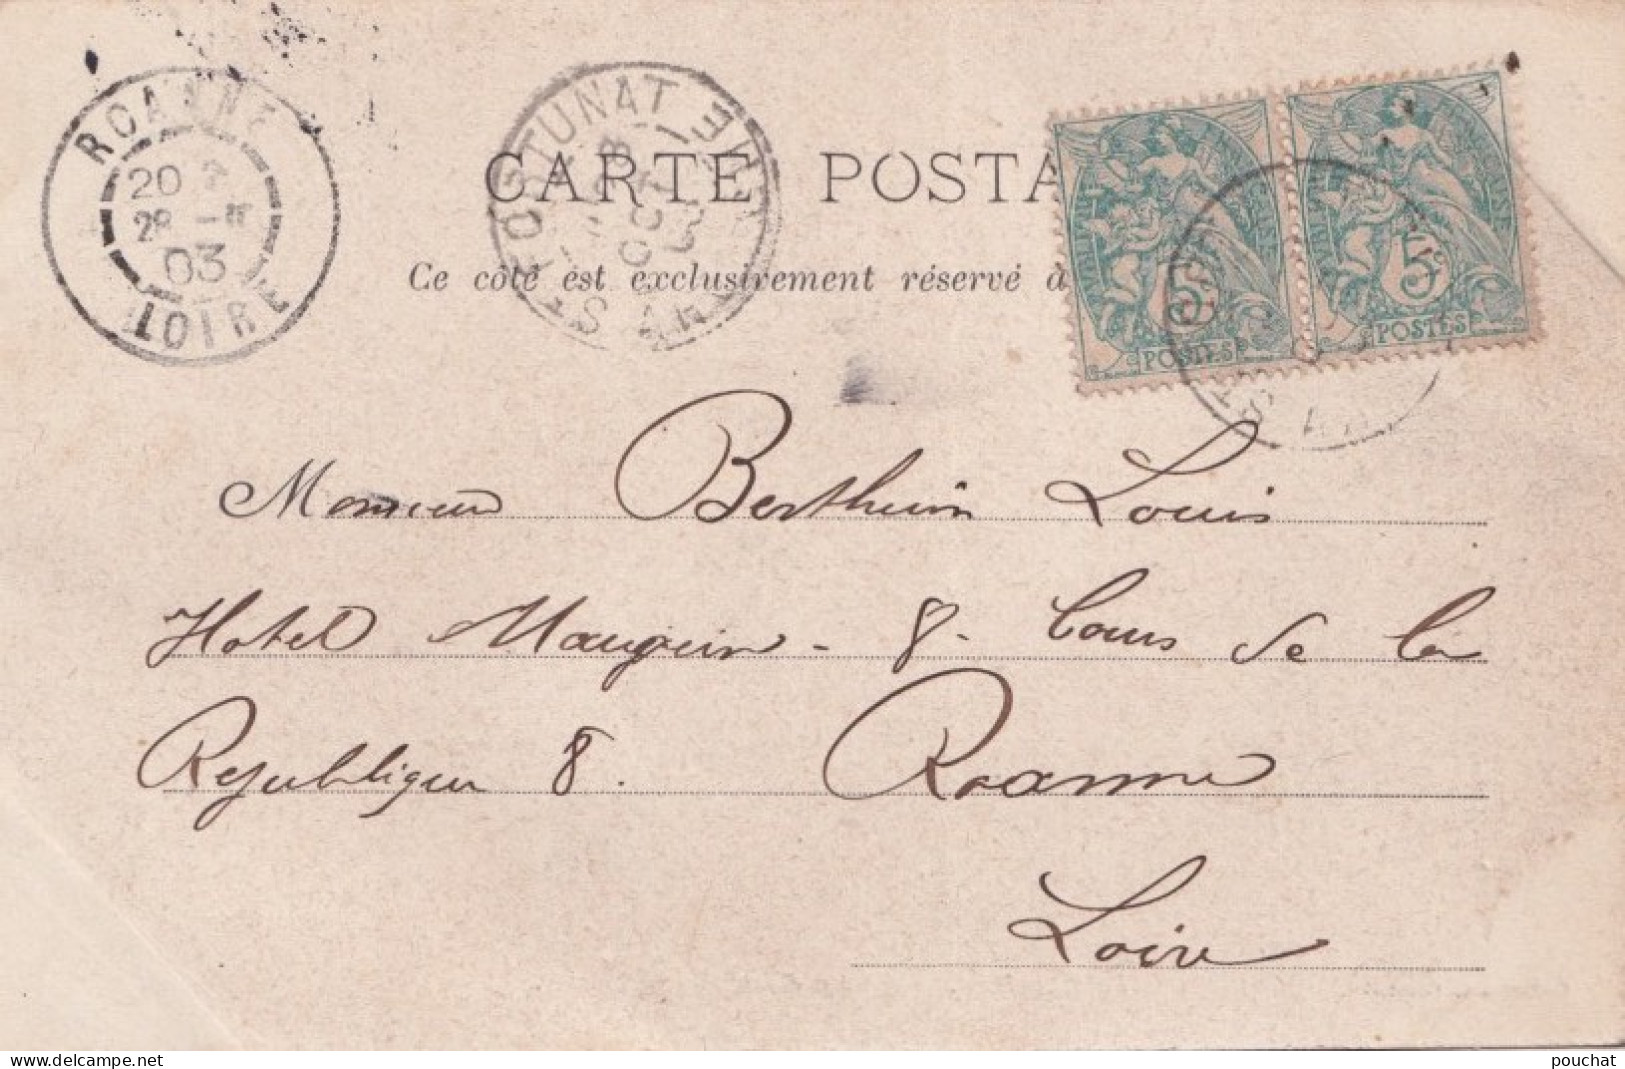 ROANNE
20
28
03
LOIRE
ST FORTUNAT
CARTE POSTA
Ce côté est exclusivement réservé à
5c
POSTES
5c
POSTES
Monsieur Berthuin Louis
Hotel Mauguin - 8 - Cours de la
Republique 8. Roanne
Loire
pouchat